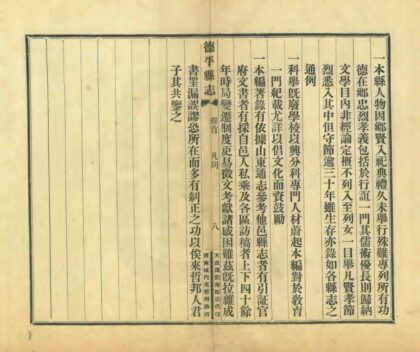 一本縣人物因鄉賢入祀典禮久未舉行殊難專列所有功
德在鄉忠烈孝義包括於行誼一門其儒術優長則歸納
文學目內非經論定槪不列入至列女一目舉凡賢孝節
烈悉入其中但守節逾三十年雖生存亦錄如各縣志之
通例
一科舉旣廢學校以興分科專門人材蔚起本編對於敎育
一門紀載尤詳以倡文化而資鼓勵
一本編著錄有依據山東通志參考他邑縣志者有引證官
府文書者有採自邑人私乘及各區訪稿者上下四十餘
年時局變遷制度更易徵文考獻諸感困難茲旣拉雜成
書罣漏誤謬恐所在而多有糾正之功以俟來哲邦人君
子其共鑒之
德平縣志
卷首
凡例
八